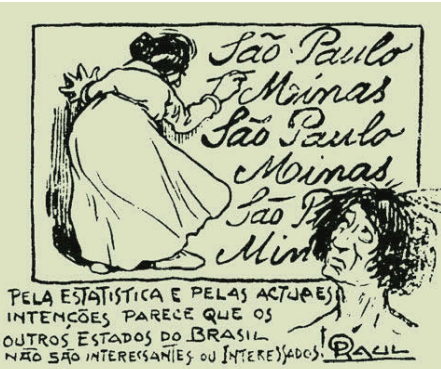 São Paulo
E Minas
São Paulo
Minas
São P
Min
PELA ESTATISTICA E PELAS ACTUAES
INTENÇÕES PARECE QUE OS
OUTROS ESTADOS DO BRASIL
NÃO SÃO INTERESSANTES OU INTERESSADOS!
RAUL